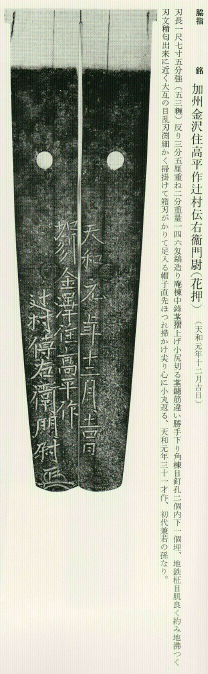 脇指　銘　加州金沢住高平作辻村伝右衛門尉（花押）（天和元年十二月吉日）
刃長一尺七寸五分強（五三糎）反り三分五厘重ね二分重量一四六匁鎬造り庵棟中鋒茎摺上げ小尻切る茎鑢筋違い勝手下り角棟目釘孔二個内下一個埋、地鉄柾目肌良く約み地沸つく
刃文稍匂出来に近く大互の目乱刃淵細かく掃掛けて箱刃がかりて足入る帽子直先ほつれ掃かけ尖り心に小丸返る、天和元年三十一才作、初代兼若の孫なり。
天和元年十二月吉日
加州金沢住高平作
辻村傳右衛門尉